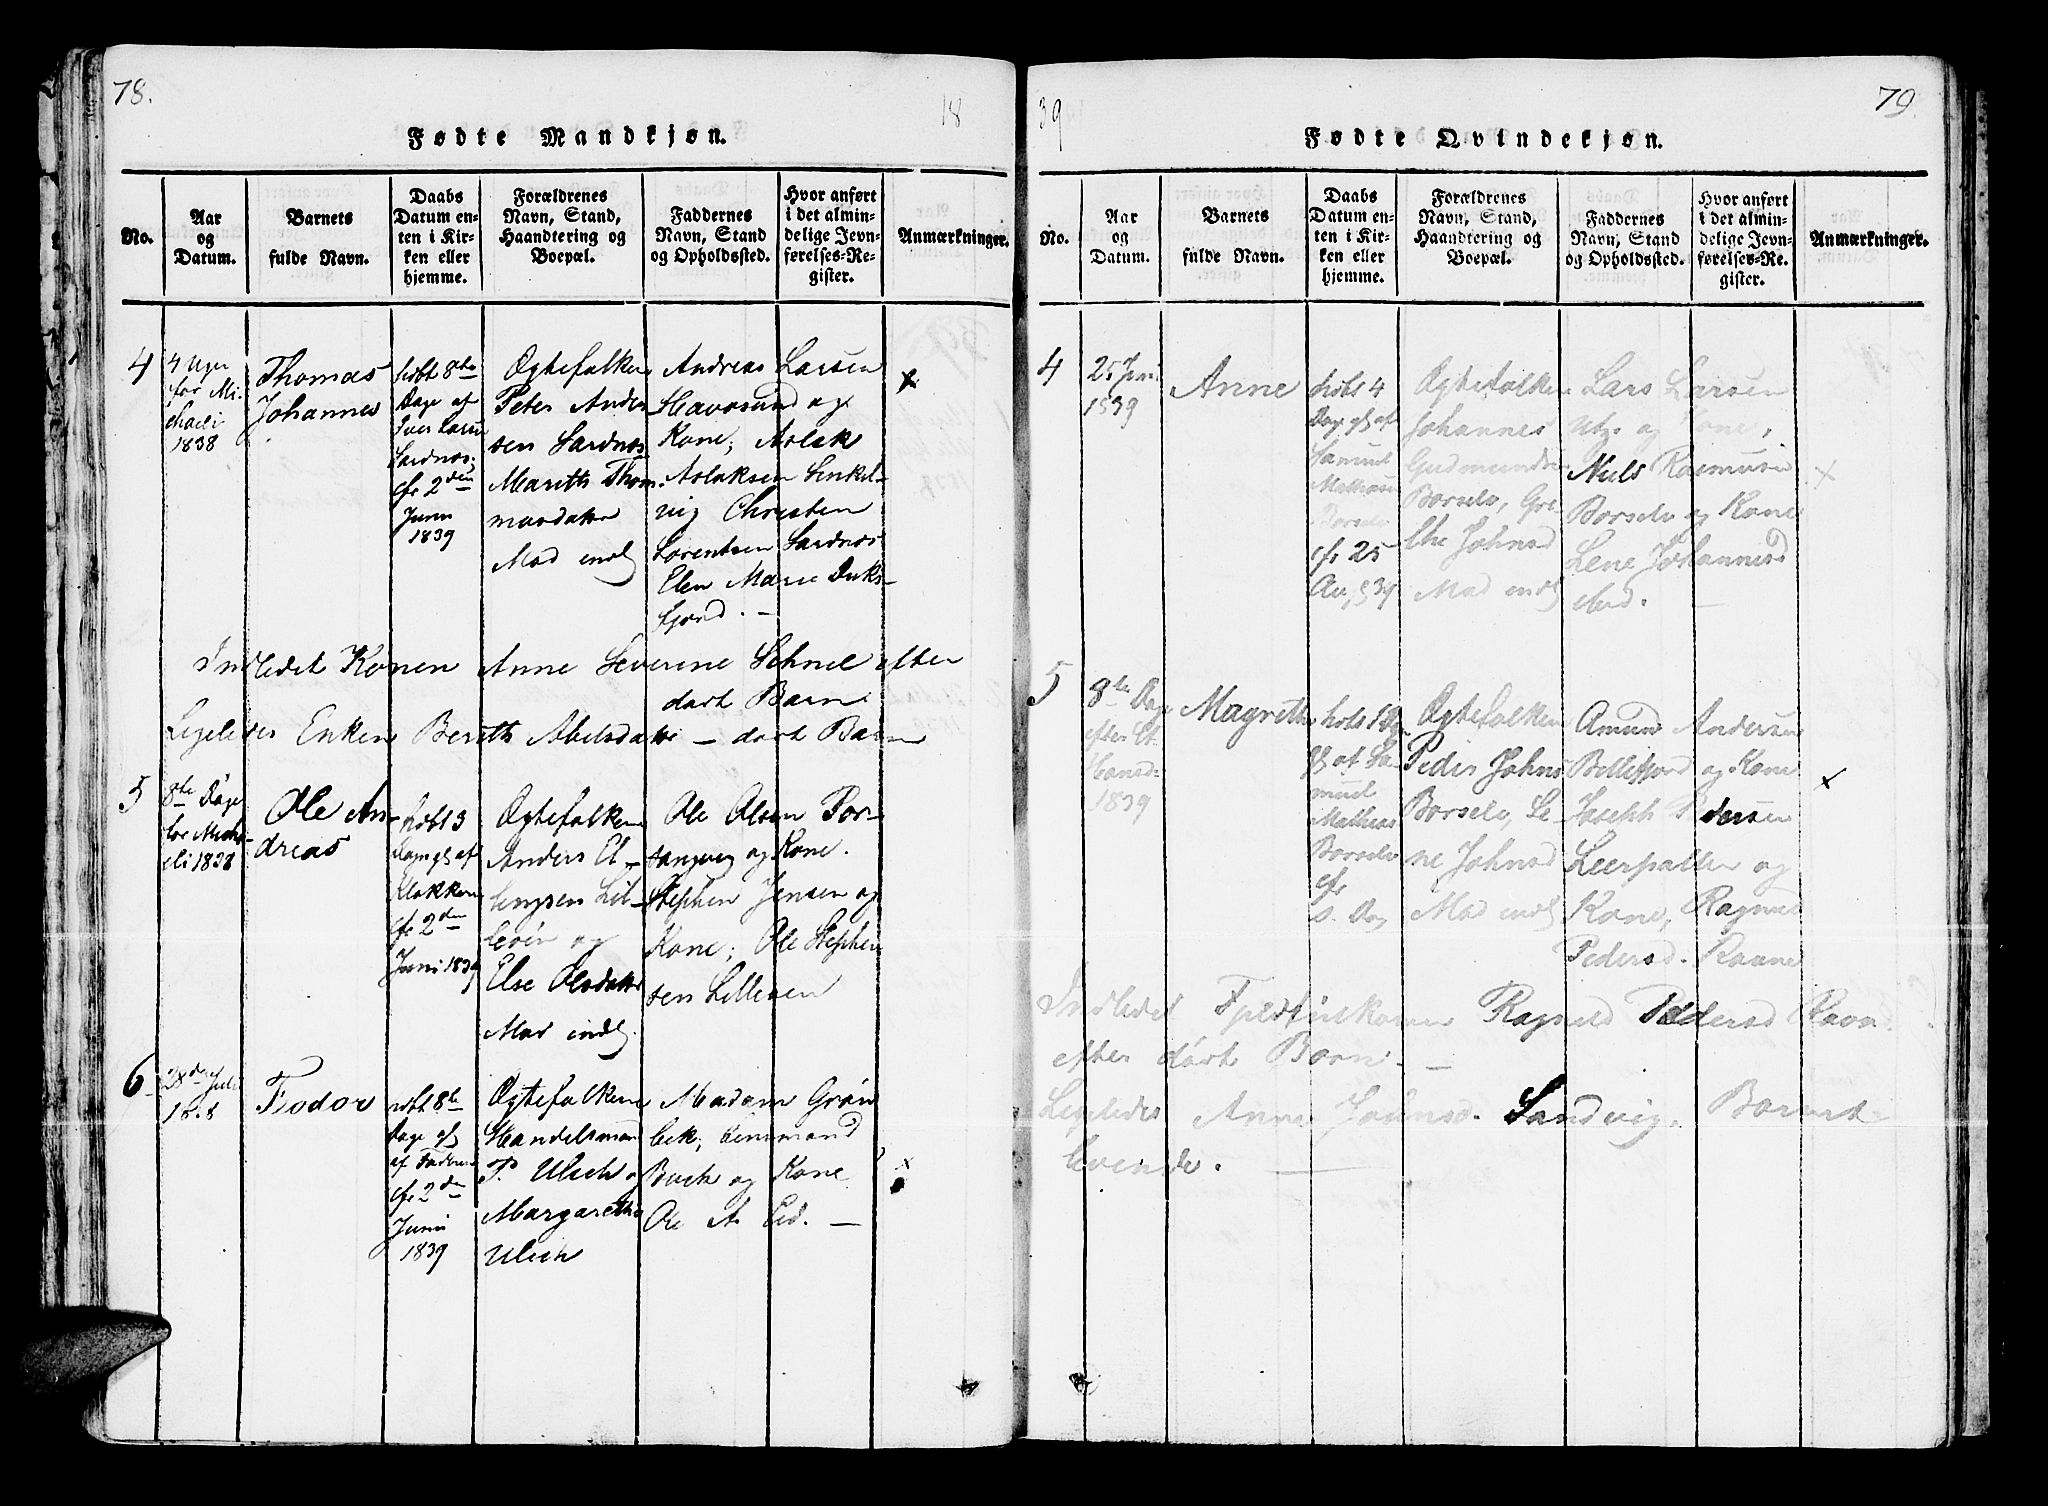 78.
18
Fødte Mandkjøn.
No.
Aar
og
Datum.
Barnets
fulde Navn.
Daabs
Datum en-
ten i Kir-
ken eller
hjemme.
Forældrenes
Navn, Stand,
Haandtering og
Boepæl.
Faddernes
Navn, Stand
og Opholdssted.
Hvor anført
i det almin-
delige Jevn-
førelses-Re-
gister.
Anmærkninger.
4
4 Uger
før Mi-
chaeli
1838
Thomas
Johannes
døbt 8te
Dage af
Iver Larsen
Sardnæs
cfr 2den
Juni
1839
Ægtefolkene
Peter Ander
sen Sardnæs
Mareth Thom
masdatter
Mad
Andreas Larsen
Havøsund og
Kone, Aslak
Aslaksen
vig Christen
Lorentsen Sardnæs
Elen Marie
fjord. —
Indledet Konen Anne Severine Schnel efter
dødt Barn
Ligeledes Enken Berith Abelsdatter — dødt Barn
5
8te Dage
for Micha-
eli 1838
Ole An-
dreas
døbt 3
af
Klokkeren
cfr 2den
Juni 1839
Ægtefolkene
Anders El-
lingsen Lil-
og
Else Olsdatter
Mad
Ole Olsen Por-
sangvig og Kone.
Stephen Jensen og
Kone; Ole Stephen
sen
6
28de Juli
Feodor
døbt 8te
Dage
af Faderen
cfr 2den
Juni
1839
Ægtefolkene
Handelsmand
P. Ulich og
Margarethe
Ulich
Madam Grøn
bek,
Buck og Kone
Ole A.
39
79.
Fødte Qvindekjøn.
No.
Aar
og
Datum.
Barnets
fulde Navn.
Daabs
Datum en-
ten i Kir-
ken eller
hjemme.
Forældrenes
Navn, Stand,
Haandtering og
Boepæl.
Faddernes
Navn, Stand
og Opholdssted.
Hvor anført
i det almin-
delige Jevn-
førelses-Re-
gister.
Anmærkninger.
4
25 Juni
1839
Anne
døbt 4
af
Samuel
Mathisen
Børselv
cfr 25
Ægtefolkene
Johannes
Gudmundsen
Børselv, Gre-
the Johnsd
Mad
Lars Larsen
og Kone,
Niels Rasmusen
Børselv og Kone
Lene Johannesd
5
8te Dage
efter St
Hansd.
1839
Magrethe
døbt
af Sa-
muel
Mathisen
Børselv
cfr
s. Dag
Ægtefolkene
Peder Johns
Børselv, Le-
ne Johnsd
Mad
Amund Andersen
og Kone
Joseph Pedersen
Leerpollen og
Kone, Ragnild
Pedersd.
Indledet Ragnild Pedersd
efter dødt Barn —
Ligeledes Anne Johnsd. Sandvig, Barnet
levende.